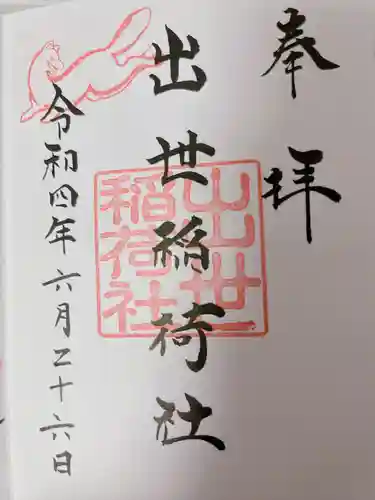 奉拝
出世稲荷社
出世
稲荷社
令和四年六月二十六日